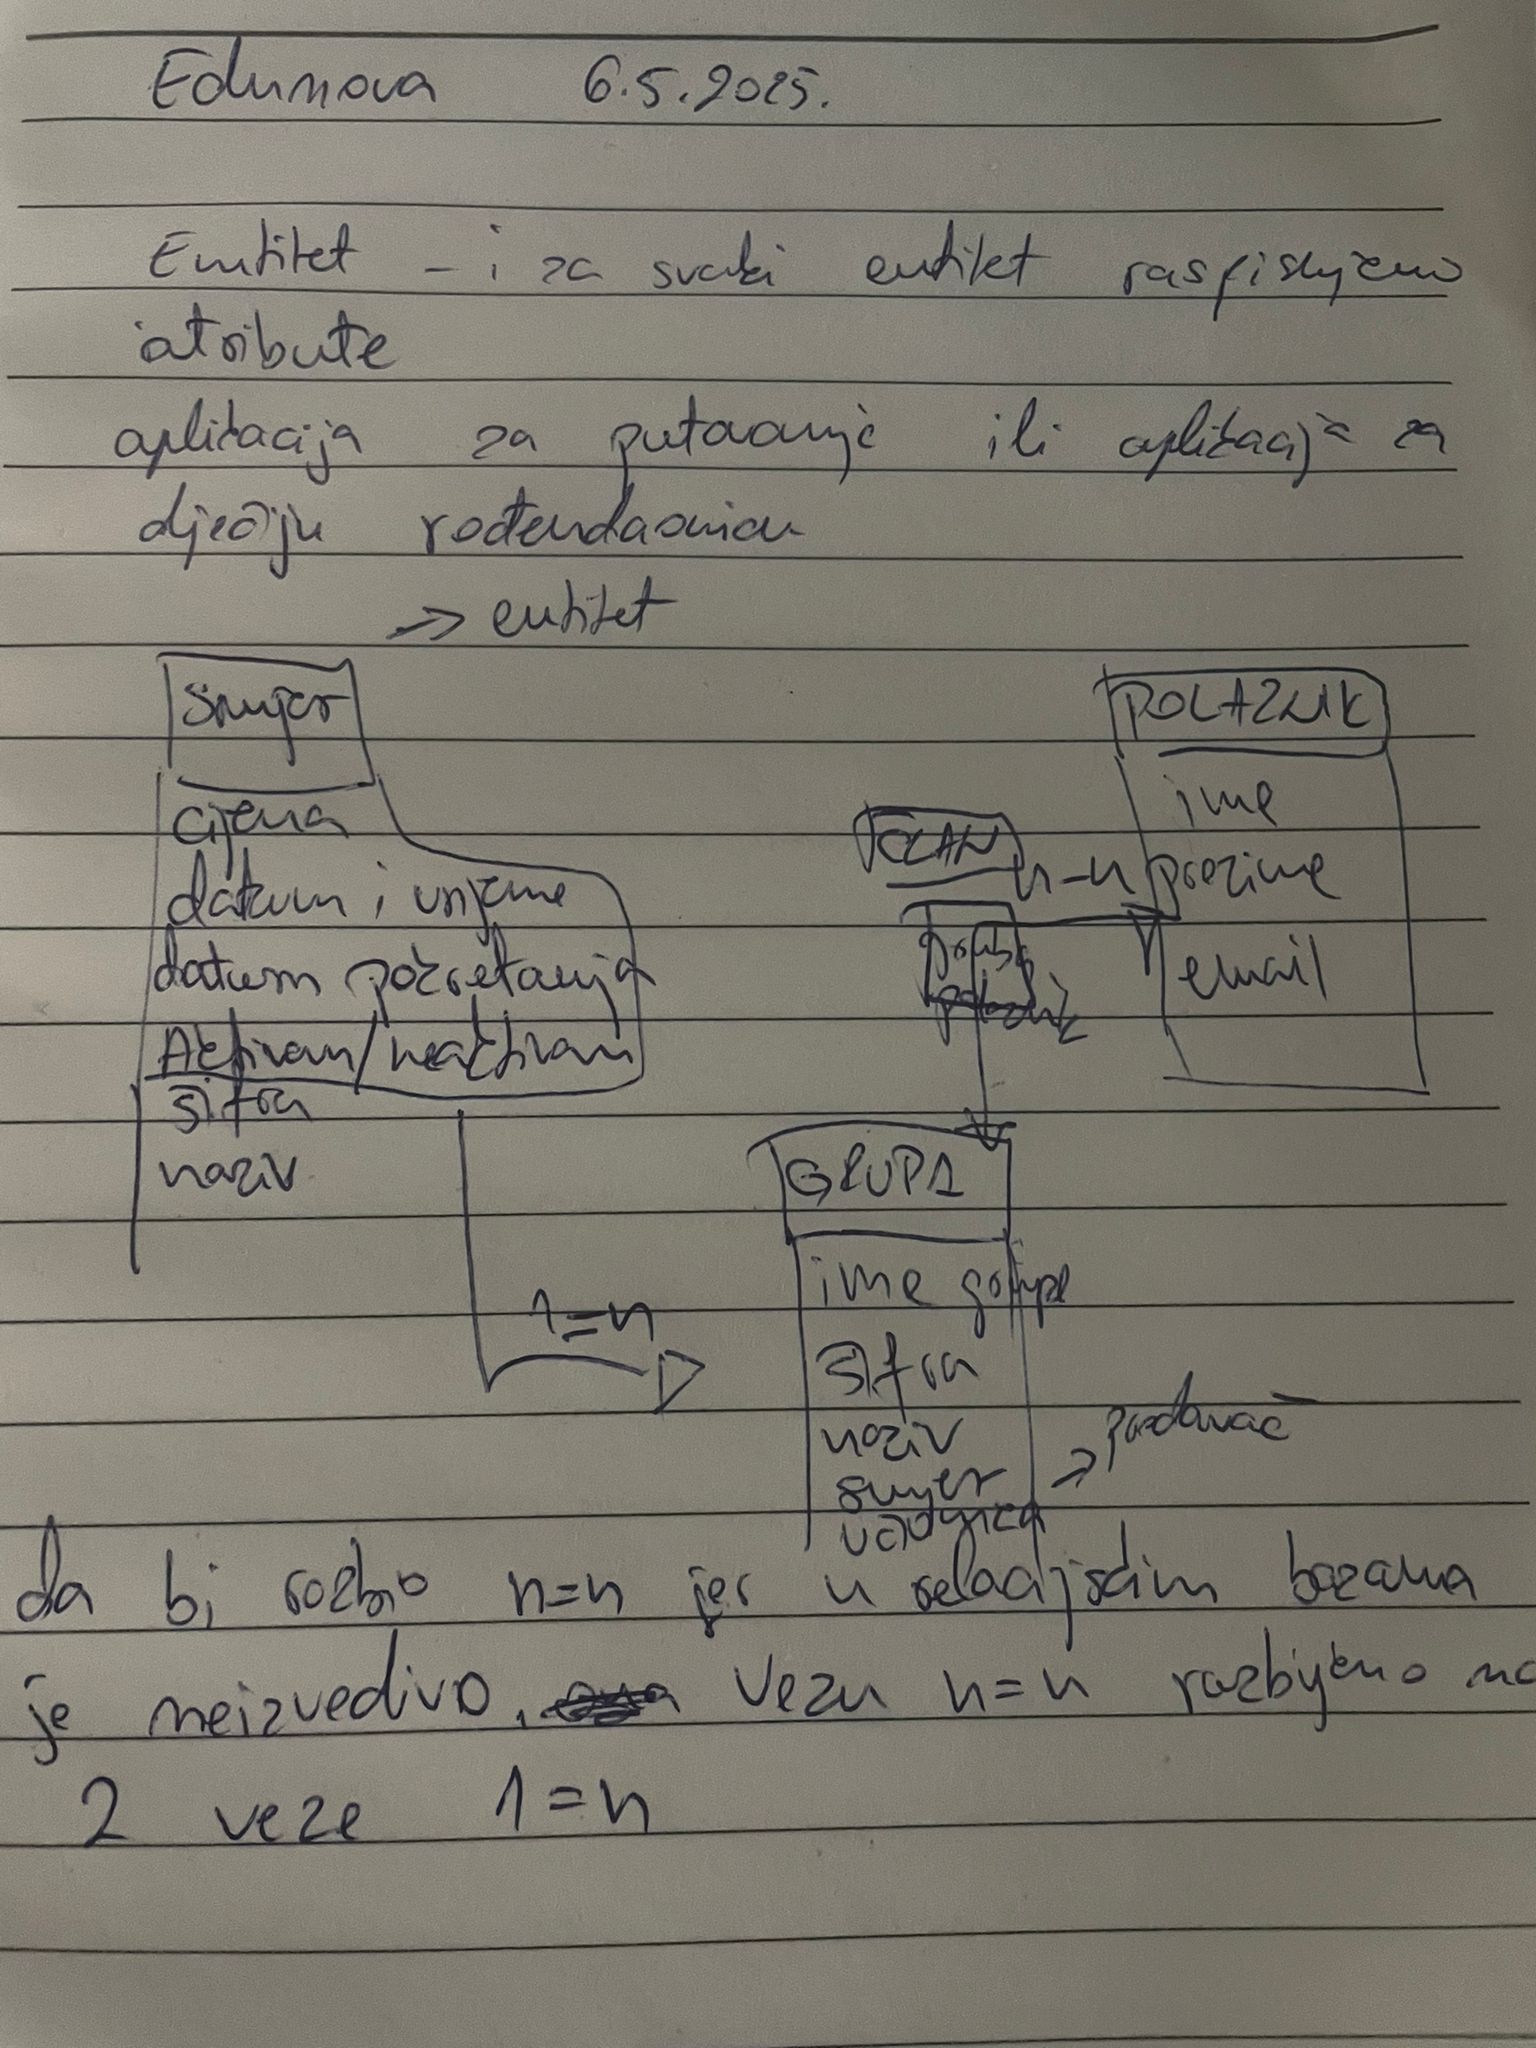 Edunova 6.5.2025.
Entitet - i za svaki entitet raspisujemo
atribute
aplikacija za putovanje ili aplikacija za
dječiju rođendaonicu
→ entitet
Smjer
cijena
datum i vrijeme
datum pokretanja
Aktivan/neaktivan
šifra
naziv
POLAZNIK
ime
prezime
email
ČLAN
n-n
grupa
polaznik
GRUPA
ime grupe
šifra
naziv
smjer
učionica
→ predavač
1=n
da bi razbio n=n jer u relacijskim bazama
je neizvedivo, vezu n=n razbijemo na
2 veze 1=n